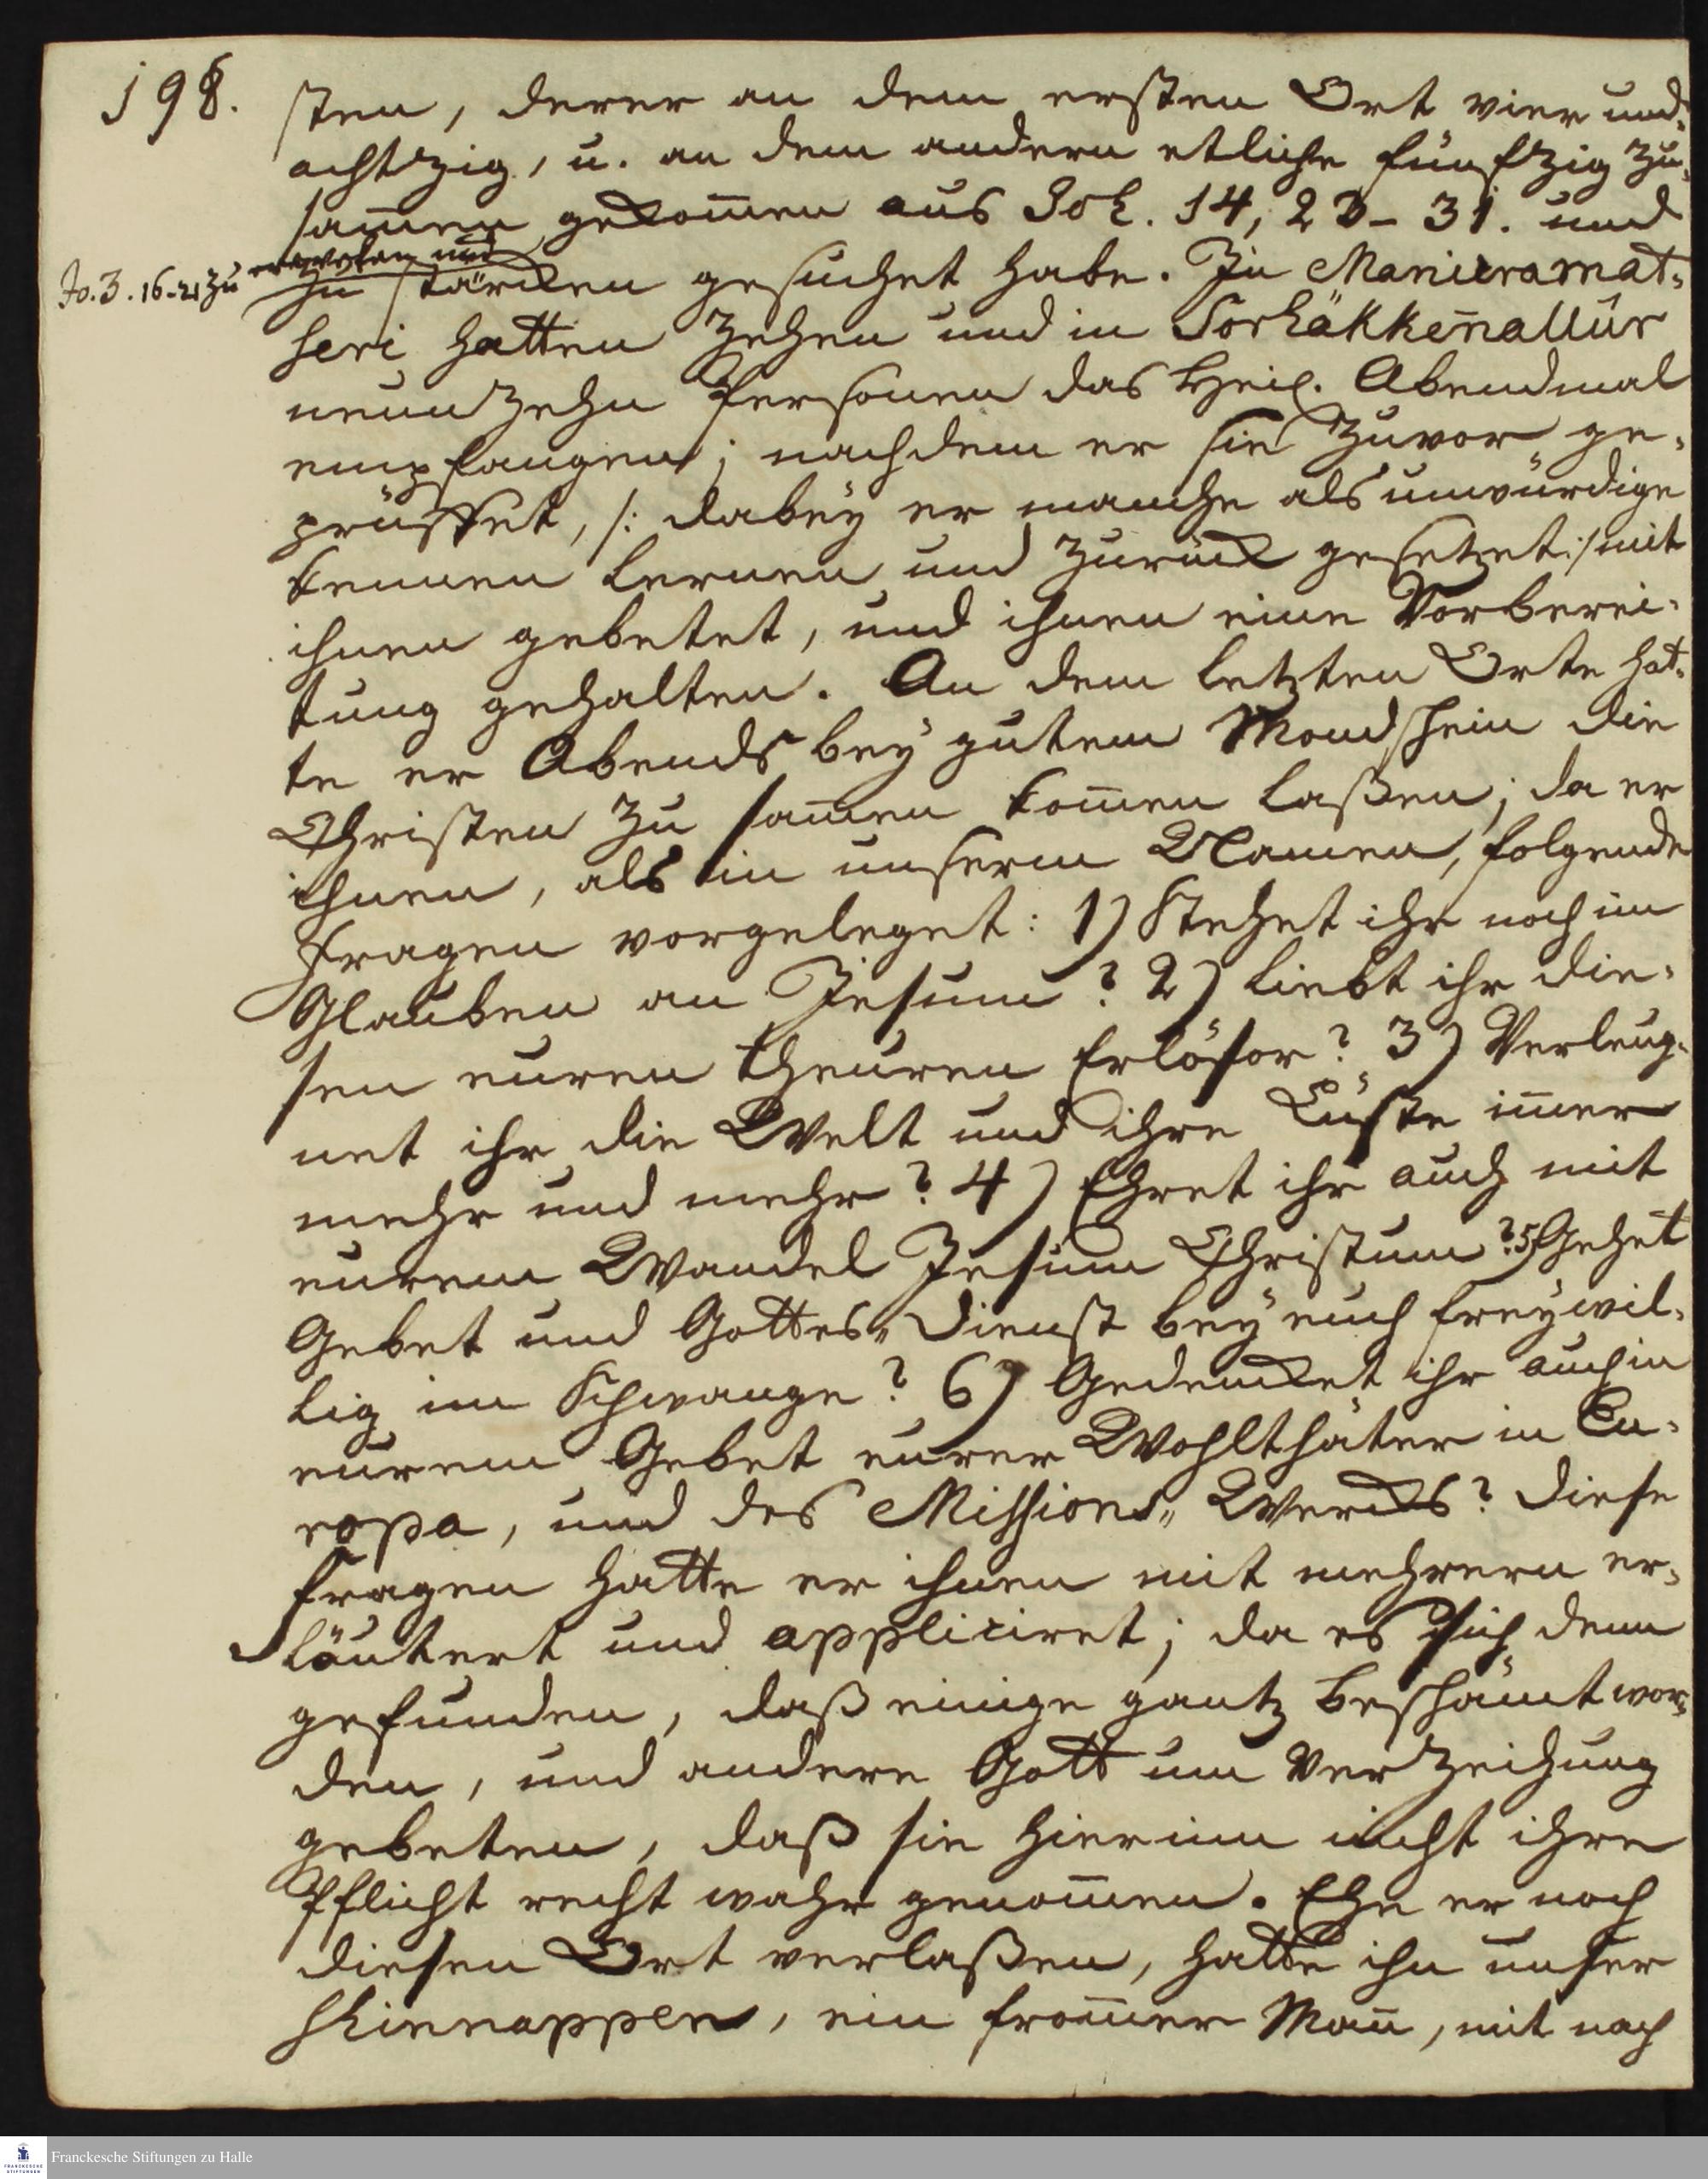 198.
sten, derer an dem ersten Ort vier und-
achtzig, u. an dem andern etliche fünfzig zu-
sam̄en gekom̄en aus Joh. 14, 23-31. und
Jo. 3. 16-21 zu erwecken und
zu stärcken gesuchet habe. In Manicramat-
seri hatten zehen und in Sorhäkken̄allür
neunzehn Personen das Heil. Abendmal
empfangen; nachdem er sie zuvor ge-
prüffet, /: dabeÿ er manche als unwürdige
kennen lernen und zurück gesetzet :/ mit
ihnen gebetet, und ihnen eine Vorberei-
tung gehalten. An dem letzten Orte hat-
te er Abends beÿ gutem Mondschein die
Christen zu sam̄en kom̄en laßen; da er
ihnen, als in unserm Namen, folgende
Fragen vorgeleget: 1) Stehet ihr noch im
Glauben an Jesum? 2) Liebt ihr die-
sen euren theuren Erlöser? 3) Verleug-
net ihr die Welt und ihre Lüste im̄er
mehr und mehr? 4) Ehret ihr auch mit
eurem Wandel Jesum Christum? 5) Gehet
Gebet und Gottes„Dienst beÿ euch freÿwil-
lig im Schwange? 6) Gedencket ihr auch in
eurem Gebet eurer Wohlthäter in Eu-
ropa, und des Missions„Wercks? Diese
Fragen hatte er ihnen mit mehrern er-
läutert und appliciret; da es sich denn
gefunden, daß einige gantz beschämt wor-
den, und andere Gott um Verzeihung
gebeten, daß sie hierinn nicht ihre
Pflicht recht wahr genom̄en. Ehe er noch
diesen Ort verlaßen, hatte ihn unser
Schinnappen, ein from̄er Man̄, mit nach
Franckesche Stiftungen zu Halle